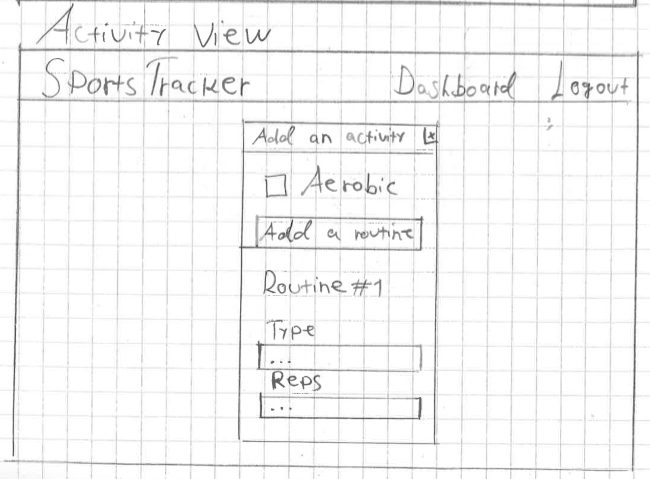 Activity View
SportsTracker Dashboard Logout
Add an activity x
Aerobic
Add a routine
Routine #1
Type
...
Reps
...